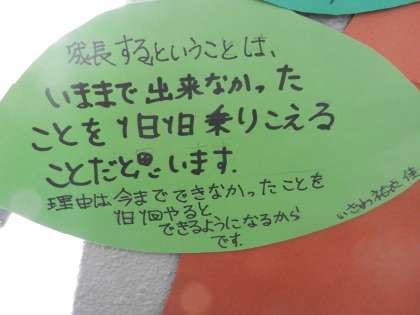 成長するということは、
いままで出来なかった
ことを1個1個乗りこえる
ことだと思います.
理由は今までできなかったことを
1個1個やると
できるようになるから
です.